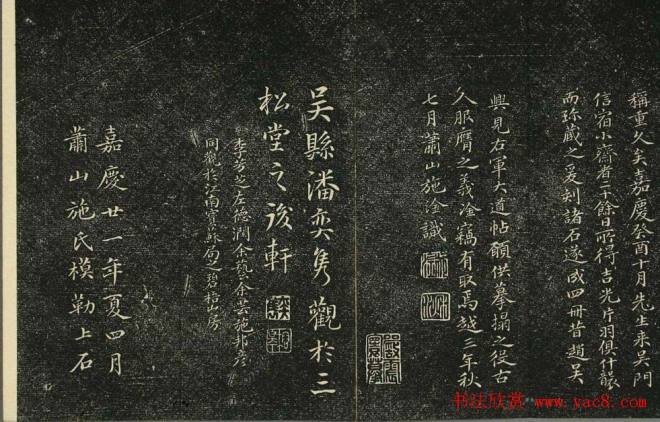 稱重久矣嘉慶癸酉十月先生来吴門
信宿小齋者二十餘日所得吉光片羽俱什襲
而珎藏之爰刻諸石遂成四冊昔趙吴
興見右軍大道帖願供摹搨之役古
人服膺之義淦竊有取焉越三年秋
七月蕭山施淦識
吴縣潘奕雋觀於三
松堂之後軒
李芳之左德潤余藝余芸施邦彦
同觀於江南寳蘇局之碧梧山房
嘉慶廿一年夏四月
蕭山施氏模勒上石
书法欣赏 www.yac8.com